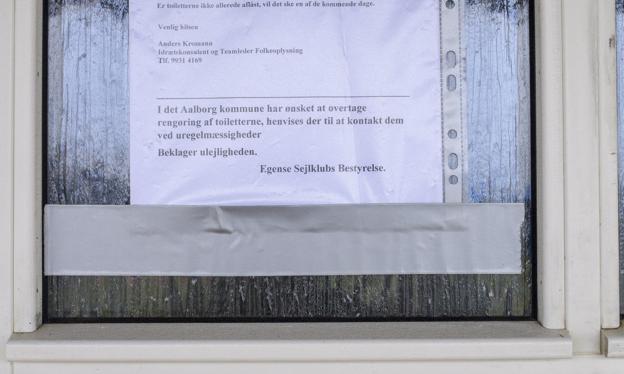 Er toiletterne ikke allerede aflåst, vil det ske en af de kommende dage.
Venlig hilsen
Anders Kromann
Idrætskonsulent og Teamleder Folkeoplysning
Tlf. 9931 4169
I det Aalborg kommune har ønsket at overtage
rengøring af toiletterne, henvises der til at kontakt dem
ved uregelmæssigheder
Beklager ulejligheden.
Egense Sejlklubs Bestyrelse.